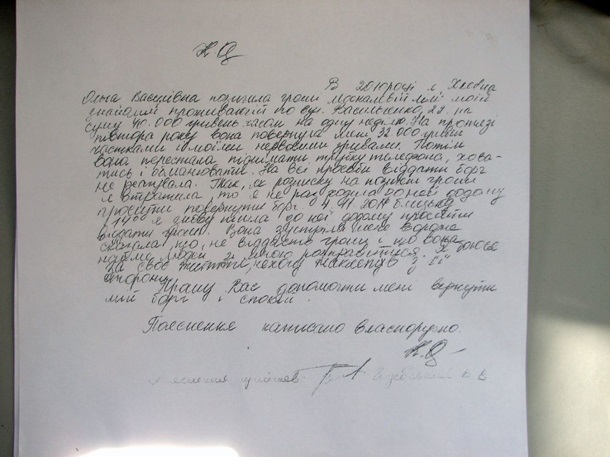 В 2010 році я,
Ольга Василівна позичила гроші моїй
знайомій проживаючій по вул. Васильченко, 22 на
суму 40.000 гривень часом на одну неділю. На протязі
півтора року вона повернула мені 32 000 гривен
частками і моїми нервовими зривами. Потім
вона перестала піднімати трубку телефона, хова-
тись і обманювати. На всі просьби віддати борг
не реагувала. Так, як розписку на позичені гроші
я втратила, то я не раз ходила до неї додому
просити повернути борг. 4. 2014 близько
я знову пішла до неї додому просити
віддати гроші. Вона зустріла мене вороже
сказала що, не віддасть гроші і що вона
найме людей за мною розправиться. Я боюся
за своє життя, чекаю наслідків з її
сторони.
Прошу Вас допомогти мені вернути
мій борг і спокій.
Пояснення написано власноручно.